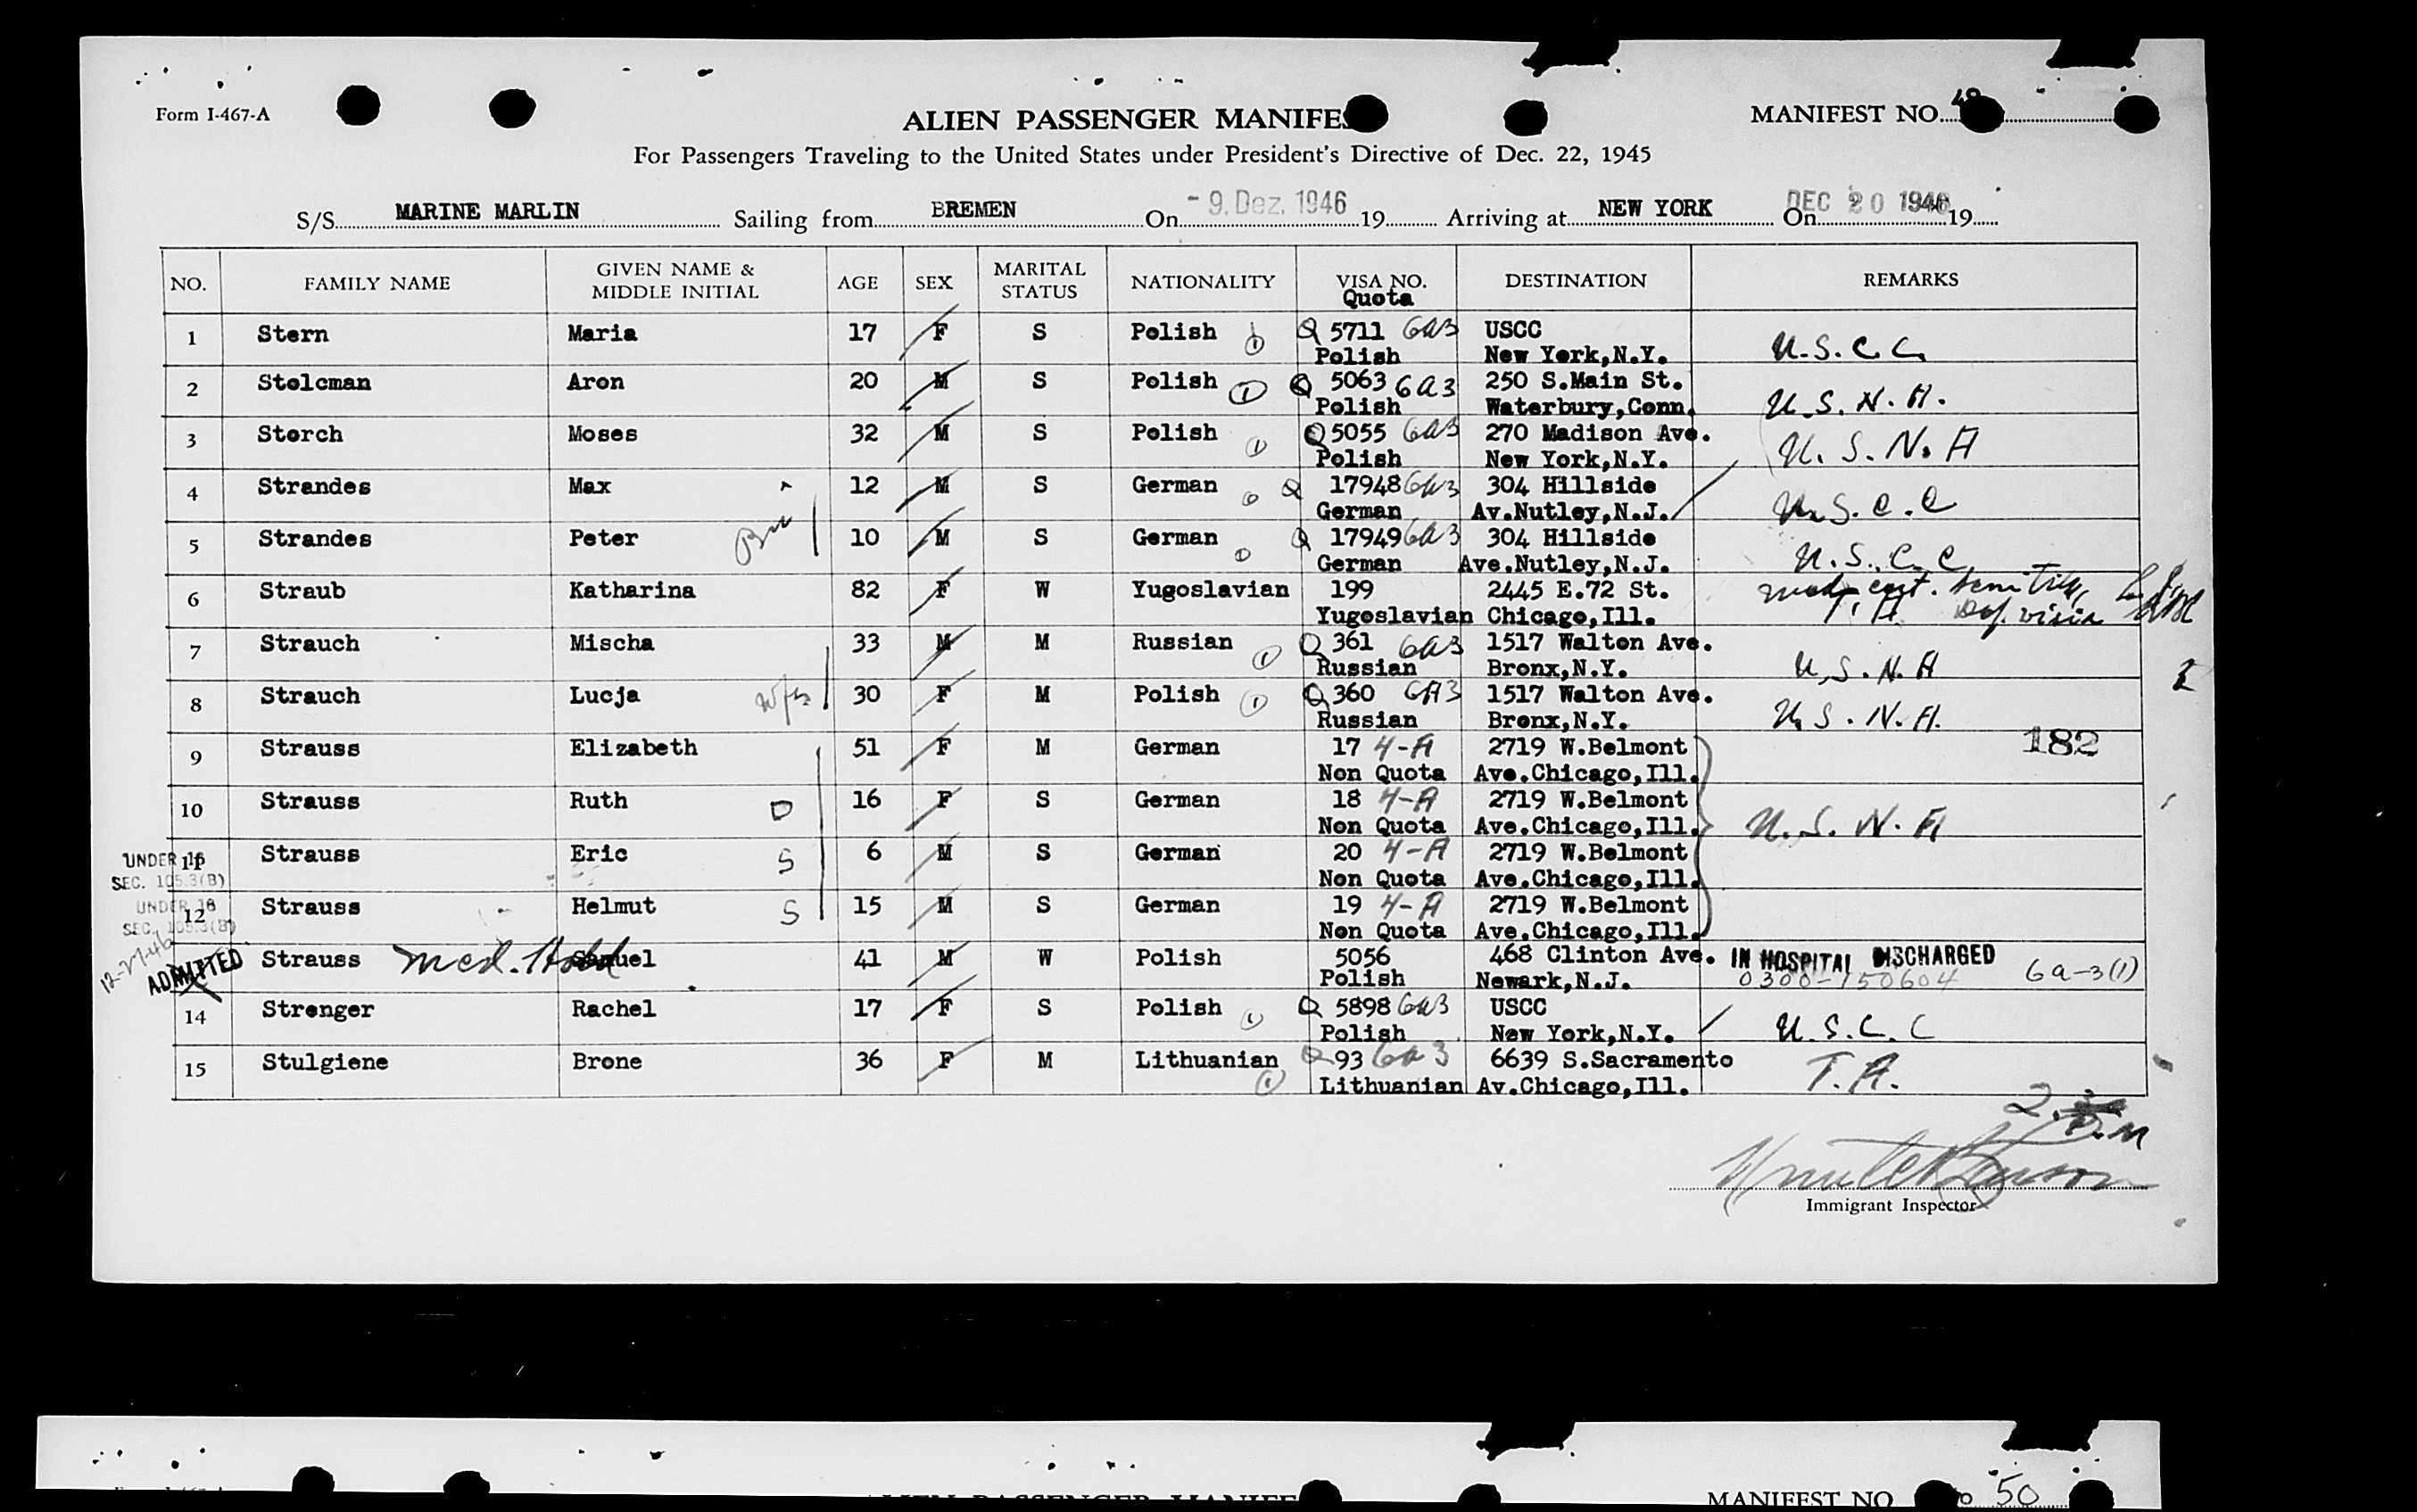 Form I-467-A
ALIEN PASSENGER MANIFES
MANIFEST NO.
For Passengers Traveling to the United States under President's Directive of Dec. 22, 1945
S/S MARINE MARLIN Sailing from BREMEN On - 9. Dez. 1946 19 Arriving at NEW YORK On DEC 20 1946 19
NO. FAMILY NAME GIVEN NAME & MIDDLE INITIAL AGE SEX MARITAL STATUS NATIONALITY VISA NO. Quota DESTINATION REMARKS
1 Stern Maria 17 F S Polish 1 Q 5711 6a3 USCC U.S.C.C.
Polish New York,N.Y.
2 Stolcman Aron 20 M S Polish 1 Q 5063 6a3 250 S.Main St. U.S.N.A.
Polish Waterbury,Conn.
3 Storch Moses 32 M S Polish 1 Q 5055 6a3 270 Madison Ave. U.S.N.A
Polish New York,N.Y.
4 Strandes Max 12 M S German Q 17948 6a3 304 Hillside U.S.C.C
German Av.Nutley,N.J.
5 Strandes Peter 10 M S German Q 17949 6a3 304 Hillside U.S.C.C
German Ave.Nutley,N.J.
6 Straub Katharina 82 F W Yugoslavian 199 2445 E.72 St. med. cert. senility
Yugoslavian Chicago,Ill. Def. vision
7 Strauch Mischa 33 M M Russian 1 Q 361 6a3 1517 Walton Ave. U.S.N.A
Russian Bronx,N.Y.
8 Strauch Lucja wife 30 F M Polish 1 Q 360 6A3 1517 Walton Ave. U.S.N.A.
Russian Bronx,N.Y.
182
9 Strauss Elizabeth 51 F M German 17 4-A 2719 W.Belmont
Non Quota Ave.Chicago,Ill.
10 Strauss Ruth D 16 F S German 18 4-A 2719 W.Belmont U.S.N.A
Non Quota Ave.Chicago,Ill.
UNDER 16 11 Strauss Eric S 6 M S German 20 4-A 2719 W.Belmont
SEC. 105.3(B) Non Quota Ave.Chicago,Ill.
UNDER 16 12 Strauss Helmut S 15 M S German 19 4-A 2719 W.Belmont
SEC. 105.3(B) Non Quota Ave.Chicago,Ill.
12-27-46 ADMITTED Strauss Med. Hold Samuel 41 M W Polish 5056 468 Clinton Ave. IN HOSPITAL DISCHARGED
Polish Newark,N.J. 0300-150604 6a-3(1)
14 Strenger Rachel 17 F S Polish 1 Q 5898 6a3 USCC U.S.C.C
Polish New York,N.Y.
15 Stulgiene Brone 36 F M Lithuanian 1 Q 93 6a3 6639 S.Sacramento T.A.
Lithuanian Av.Chicago,Ill.
Immigrant Inspector
ALIEN PASSENGER MANIFE
MANIFEST NO. 50